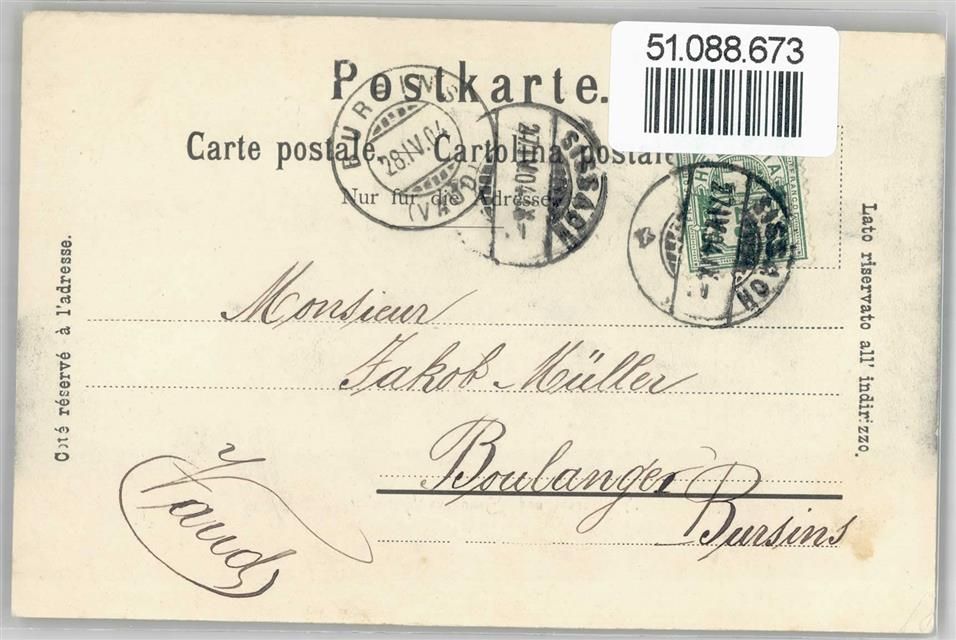 51.088.673
Postkarte.
Carte postale. Cartolina postale
Nur für die Adresse.
BURSINS
28.IV.04
(VAUD)
SISSACH
27.IV.04
SISSACH
27.IV.04
Côté réservé à l'adresse.
Lato riservato all' indirizzo.
Monsieur
Jakob Müller
Boulanger
Bursins
Vaud